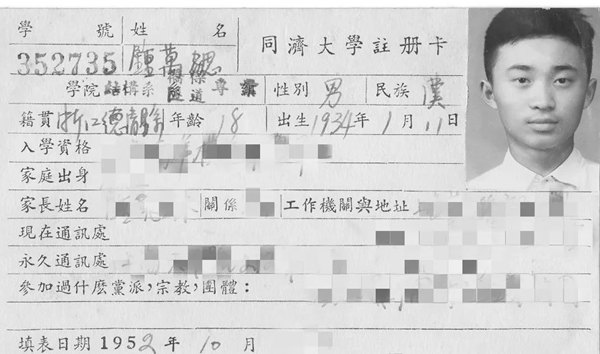 學 號 姓 名 同濟大學註册卡
352735 鍾萬勰
學院 結構系 橋樑隧道 專業 性別 男 民族 漢
籍貫 浙江德清縣 年齡 18 出生 1934年 1月 11日
入學資格
家庭出身
家長姓名 關係 工作機關與地址
現在通訊處
永久通訊處
參加過什麽黨派,宗教,團體:
填表日期 1952年 10月